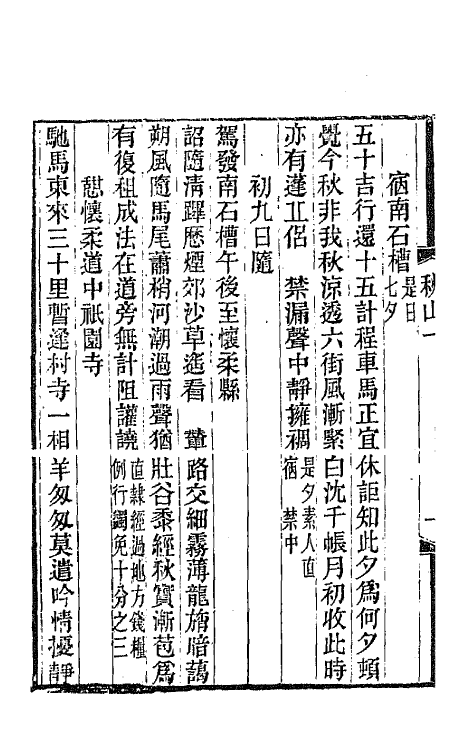 宿南石槽是日七夕
五十吉行還十五計程車馬正宜休詎知此夕爲何夕頓
覺今秋非我秋涼透六街風漸緊白沈千帳月初收此時
亦有蓬丘侶　禁漏聲中靜擁裯是夕素人直宿　禁中
初九日隨
駕發南石槽午後至懷柔縣
詔隨淸蹕歷煙郊沙草遙看　輦路交細霧薄龍旂暗藹
朔風隨馬尾蕭梢河潮過雨聲猶壯谷黍經秋實漸苞爲
有復租成法在道旁無計阻讙譊直隸經過地方錢糧例行蠲免十分之三
憇懷柔道中祇園寺
馳馬東來三十里暫逢村寺一相羊匆匆莫遣吟情擾靜
秋山一
一